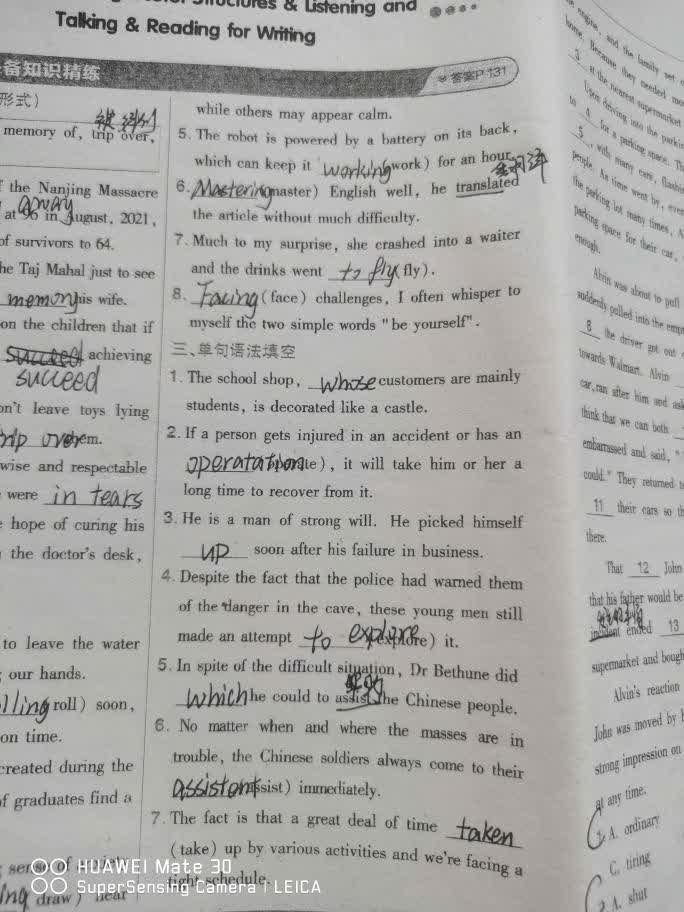 Structures & Listening and
Talking & Reading for Writing
备知识精练
答案P 131
形式)
memory of, trip over,
f the Nanjing Massacre
away
at 96 in August, 2021,
of survivors to 64.
he Taj Mahal just to see
memory his wife.
on the children that if
succeed achieving
succeed
on't leave toys lying
rip over em.
wise and respectable
were in tears
e hope of curing his
the doctor's desk,
to leave the water
our hands.
lling roll) soon,
on time.
created during the
of graduates find a
sense of
ing draw) near
while others may appear calm.
5. The robot is powered by a battery on its back,
which can keep it working work) for an hour.
6. Mastering master) English well, he translated
the article without much difficulty.
7. Much to my surprise, she crashed into a waiter
and the drinks went to fly (fly).
8. Facing (face) challenges, I often whisper to
myself the two simple words "be yourself".
三、单句语法填空
1. The school shop, whose customers are mainly
students, is decorated like a castle.
2. If a person gets injured in an accident or has an
operatation te), it will take him or her a
long time to recover from it.
3. He is a man of strong will. He picked himself
up soon after his failure in business.
4. Despite the fact that the police had warned them
of the danger in the cave, these young men still
made an attempt to explore (explore) it.
5. In spite of the difficult situation, Dr Bethune did
which he could to assist the Chinese people.
6. No matter when and where the masses are in
trouble, the Chinese soldiers always come to their
assistant ssist) immediately.
7. The fact is that a great deal of time taken
(take) up by various activities and we're facing a
tight schedule.
engine, and the family set
home. Because they needed
3 at the nearest supermarket
Upon driving into the parkin
to 4 for a parking space. Th
5, with many cars, flashin
people. As time went by, eve
the parking lot many times, A
parking space for their car,
enough.
Alvin was about to pull
suddenly pulled into the emp
8 the driver got out
towards Walmart. Alvin
car, ran after him and ask
think that we can both
embarrassed and said, "
could." They returned to
11 their cars so th
there.
That 12 John
that his father would be
incident ended 13
supermarket and bough
Alvin's reaction
John was moved by
strong impression on
at any time.
1. A. ordinary
C. tiring
2. A. shut
HUAWEI Mate 30
SuperSensing Camera | LEICA